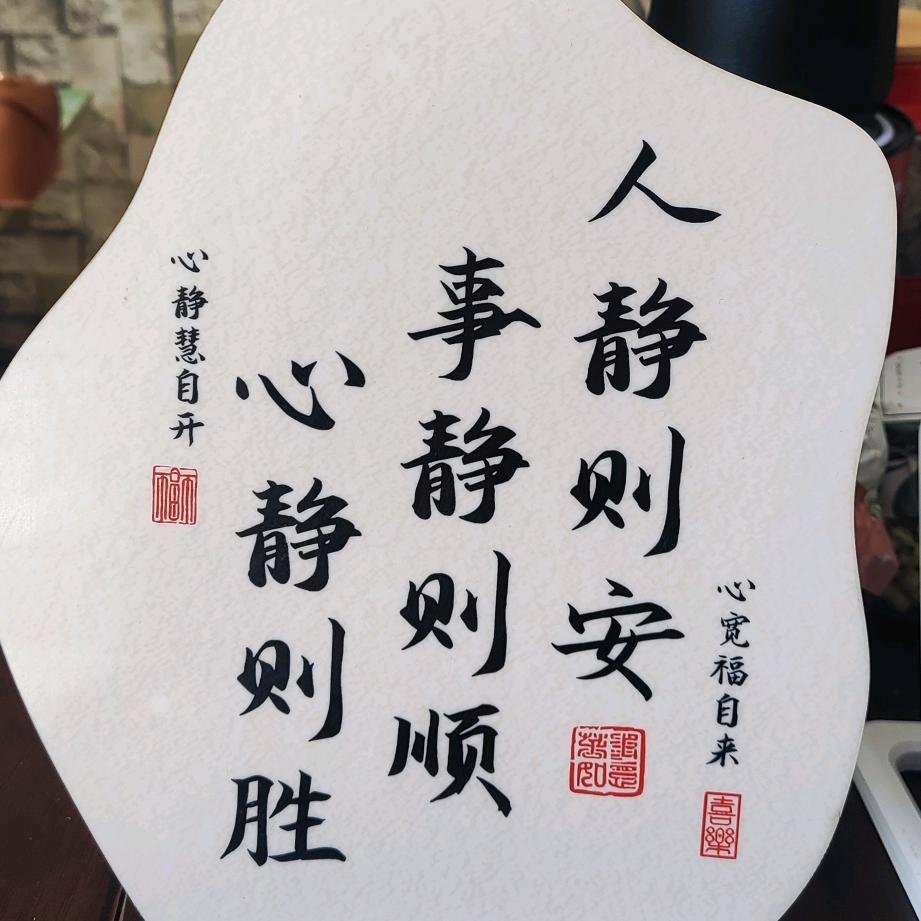 人静则安
事静则顺
心静则胜
心宽福自来
喜樂
心静慧自开